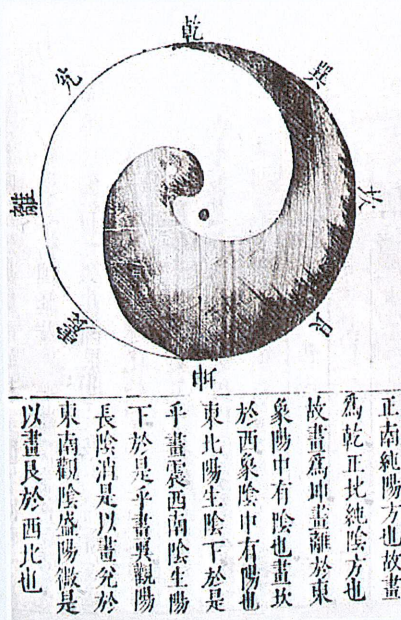 乾
兌
巽
離
坎
震
艮
坤
正南純陽方也故畫
爲乾正北純陰方也
故畫爲坤畫離於東
象陽中有陰也畫坎
於西象陰中有陽也
東北陽生陰下於是
乎畫震西南陰生陽
下於是乎畫巽觀陽
長陰消是以畫兌於
東南觀陰盛陽微是
以畫艮於西北也